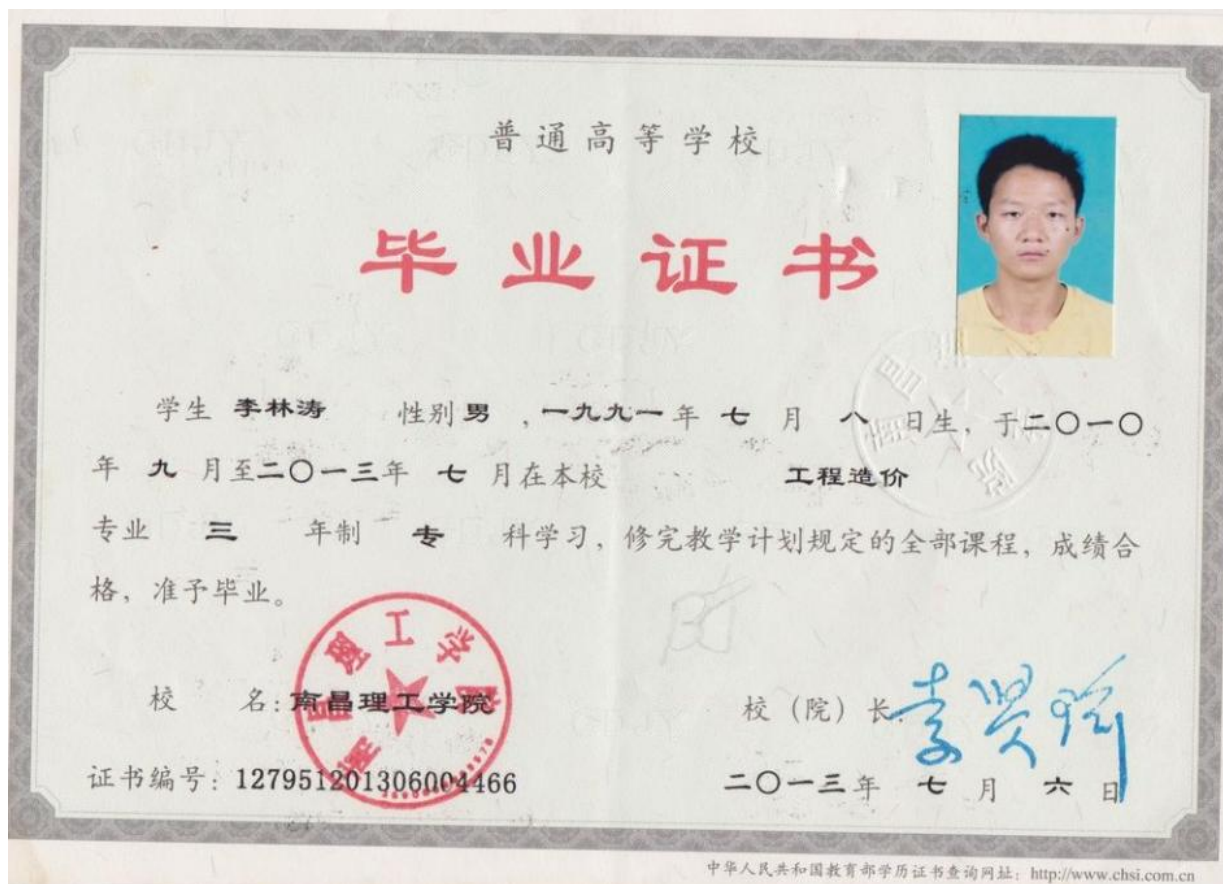 普通高等学校
毕业证书
学生 李林涛 性别 男 ，一九九一 年 七 月 八 日生，于二〇一〇
年 九 月至二〇一三年 七 月在本校 工程造价
专业 三 年制 专 科学习，修完教学计划规定的全部课程，成绩合
格，准予毕业。
南昌理工学院
校 名：南昌理工学院
校（院）长：
证书编号：127951201306004466
二〇一三年 七 月 六 日
中华人民共和国教育部学历证书查询网址：http://www.chsi.com.cn